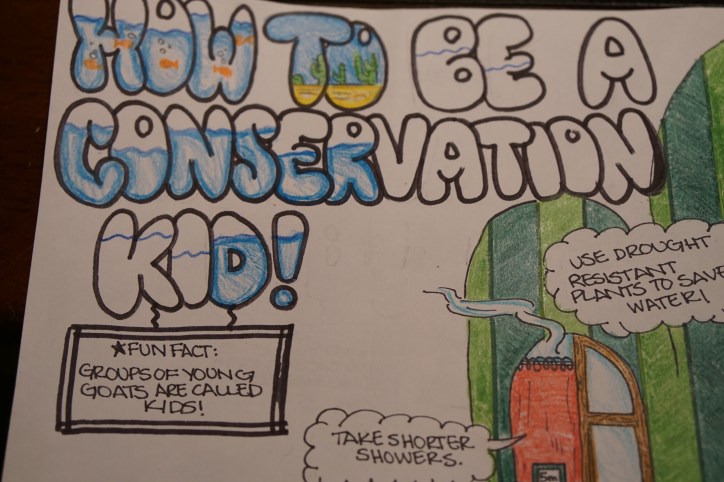 HOW TO BE A
CONSERVATION
KID!
★FUN FACT:
GROUPS OF YOUNG
GOATS ARE CALLED
KIDS!
USE DROUGHT
RESISTANT
PLANTS TO SAVE
WATER!
TAKE SHORTER
SHOWERS.
5m